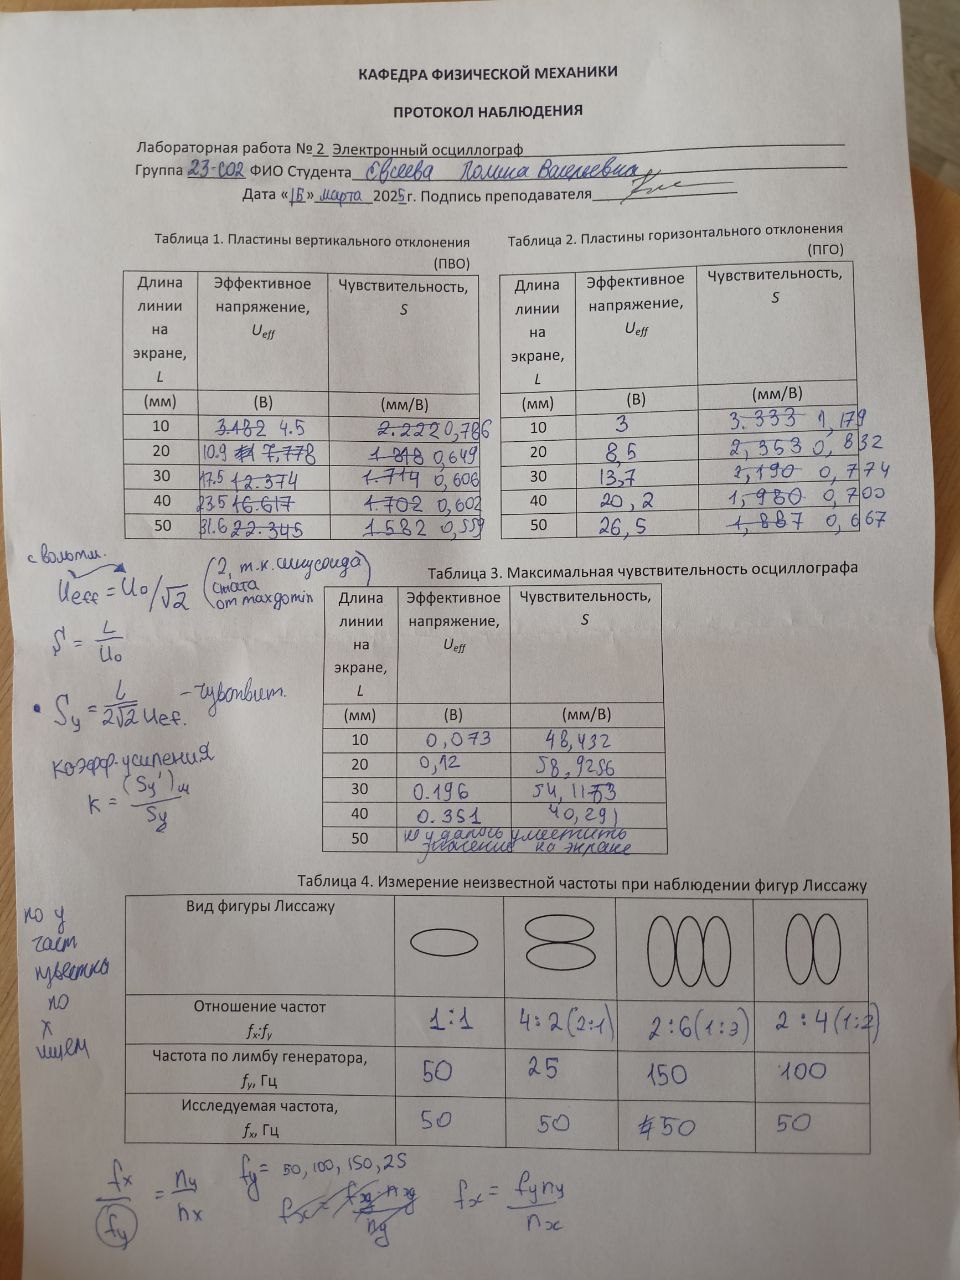 КАФЕДРА ФИЗИЧЕСКОЙ МЕХАНИКИ
ПРОТОКОЛ НАБЛЮДЕНИЯ
Лабораторная работа № 2 Электронный осциллограф
Группа 23-С02 ФИО Студента Евсеева Полина Васильевна
Дата «15» марта 2025 г. Подпись преподавателя
Таблица 1. Пластины вертикального отклонения
(ПВО)
Длина линии на экране, L Эффективное напряжение, Ueff Чувствительность, S
(мм) (В) (мм/В)
10 3.182 4.5 2.222 0,786
20 10.9 7,778 1.818 0,649
30 17.5 12.374 1.714 0,606
40 23.5 16.617 1.702 0,602
50 31.6 22.345 1.582 0,559
Таблица 2. Пластины горизонтального отклонения
(ПГО)
Длина линии на экране, L Эффективное напряжение, Ueff Чувствительность, S
(мм) (В) (мм/В)
10 3 3.333 1,179
20 8,5 2,353 0,832
30 13,7 2,190 0,774
40 20,2 1,980 0,700
50 26,5 1,887 0,667
с вольтм.
Ueff = U0/√2 (2, т.к. синусоида
от max до min)
S = L/U0
Таблица 3. Максимальная чувствительность осциллографа
Длина линии на экране, L Эффективное напряжение, Ueff Чувствительность, S
(мм) (В) (мм/В)
10 0,073 48,432
20 0,12 58,9256
30 0.196 54,1153
40 0.351 40,291
50 не удалось уместить
значение на экране
• Sy = L/2√2 Uef. - чувствит.
коэфф. усиления
k = (Sy')м/Sy
Таблица 4. Измерение неизвестной частоты при наблюдении фигур Лиссажу
Вид фигуры Лиссажу
Отношение частот fx:fy 1:1 4:2 (2:1) 2:6 (1:3) 2:4 (1:2)
Частота по лимбу генератора, fy, Гц 50 25 150 100
Исследуемая частота, fx, Гц 50 50 50 50
по y
част
известна
по
x
ищем
fx/fy = ny/nx
fy = 50, 100, 150, 25
fx = fy ny/nx